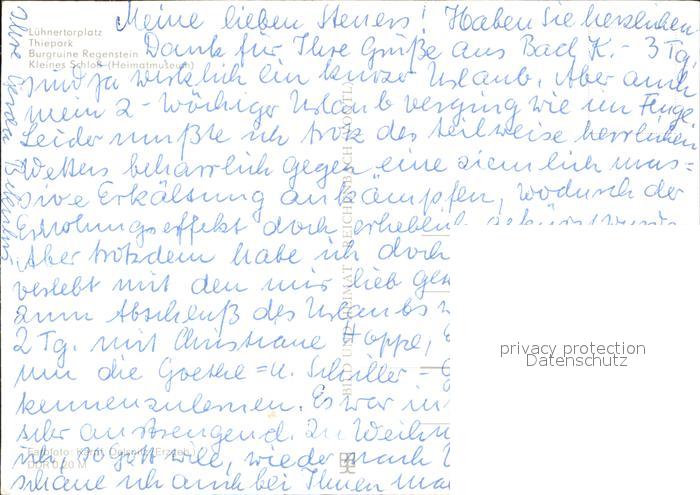 Lühnertorplatz
Thiepark
Burgruine Regenstein
Kleines Schloß (Heimatmuseum)
Meine lieben Steners! Haben Sie herzlichen
Dank für Ihre Grüße aus Bad K. - 3 Tg.
sind ja wirklich ein kurzer Urlaub. Aber auch
mein 2-wöchiger Urlaub verging wie im Fluge.
Leider mußte ich trotz des teilweise herrlichen
Wetters beharrlich gegen eine ziemlich mas=
sive Erkältung ankämpfen, wodurch der
Erholungseffekt doch erheblich gekürzt wurde
Aber trotzdem habe ich doch
verlebt mit den mir lieb
zum Abschluß des Urlaubs
2 Tg. mit Christiane Hoppe,
um die Goethe = u. Schiller =
kennenzulernen. Es war
sehr anstrengend. Zu Weihn
ich, so Gott will, wieder nach
schaue ich auch bei Ihnen
Ihre Gerda
BILD UND HEIMAT REICHENBACH (VOGTL)
Farbfoto: Kraft, Oelsnitz (Erzgeb.)
DDR 0,20 M
privacy protection
Datenschutz